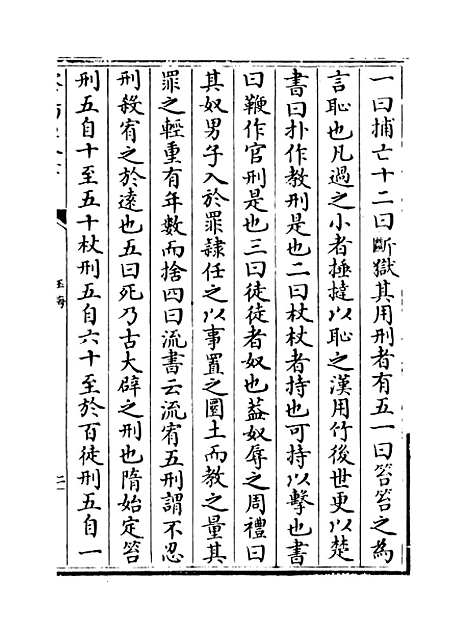 一曰捕亡十二曰斷獄其用刑者有五一曰笞笞之為
言恥也凡過之小者捶撻以恥之漢用竹後世更以楚
書曰扑作教刑是也二曰杖杖者持也可持以擊也書
曰鞭作官刑是也三曰徒徒者奴也葢奴辱之周禮曰
其奴男子入於罪隷任之以事置之圜土而教之量其
罪之輕重有年數而捨四曰流書云流宥五刑謂不忍
刑殺宥之於遠也五曰死乃古大辟之刑也隋始定笞
刑五自十至五十杖刑五自六十至於百徒刑五自一
玉海
二